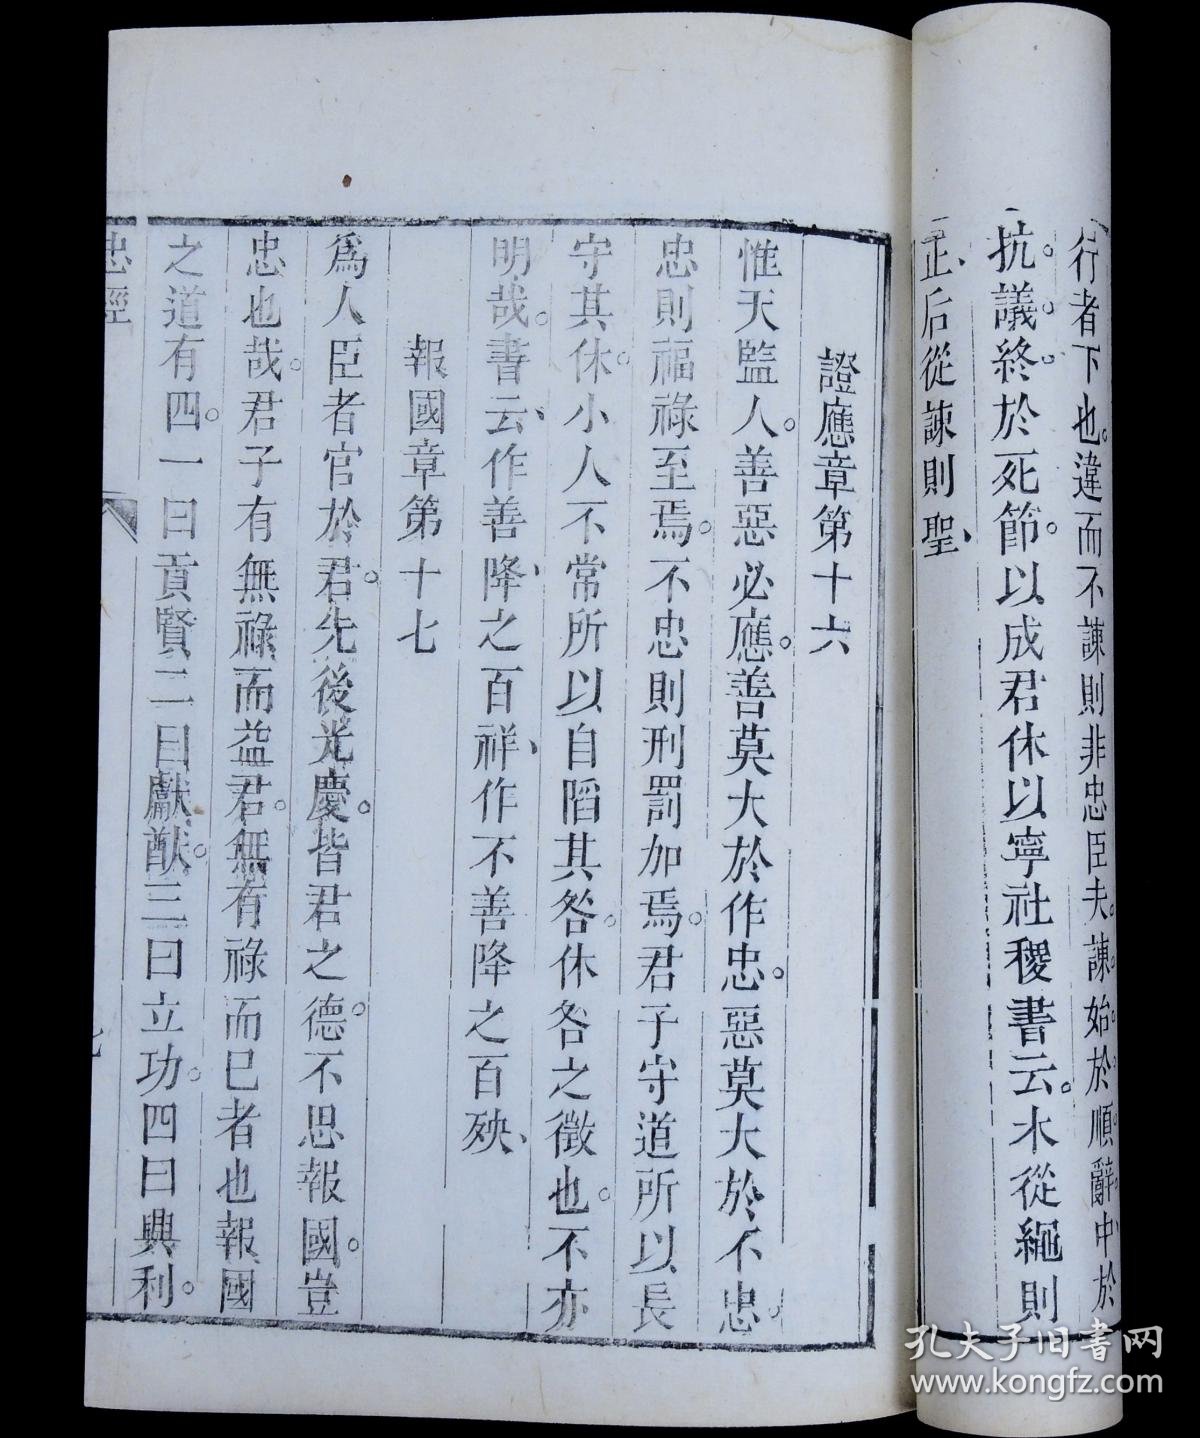 行者下也違而不諫則非忠臣夫諫始於順辭中於
抗議終於死節以成君休以寧社稷書云木從繩則
正后從諫則聖
證應章第十六
惟天監人善惡必應善莫大於作忠惡莫大於不忠
忠則福祿至焉不忠則刑罰加焉君子守道所以長
守其休小人不常所以自陷其咎休咎之徵也不亦
明哉書云作善降之百祥作不善降之百殃
報國章第十七
爲人臣者官於君先後光慶皆君之德不思報國豈
忠也哉君子有無祿而益君無有祿而已者也報國
之道有四一曰貢賢二曰獻猷三曰立功四曰興利
忠經
孔夫子旧书网
www.kongfz.com